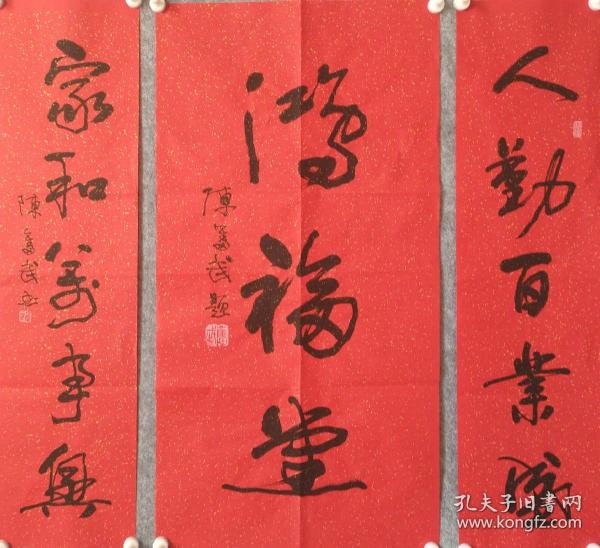 人勤百業盛
鴻福堂
陳 武題
家和萬事興
陳 武
孔夫子旧书网
www.kongfz.com